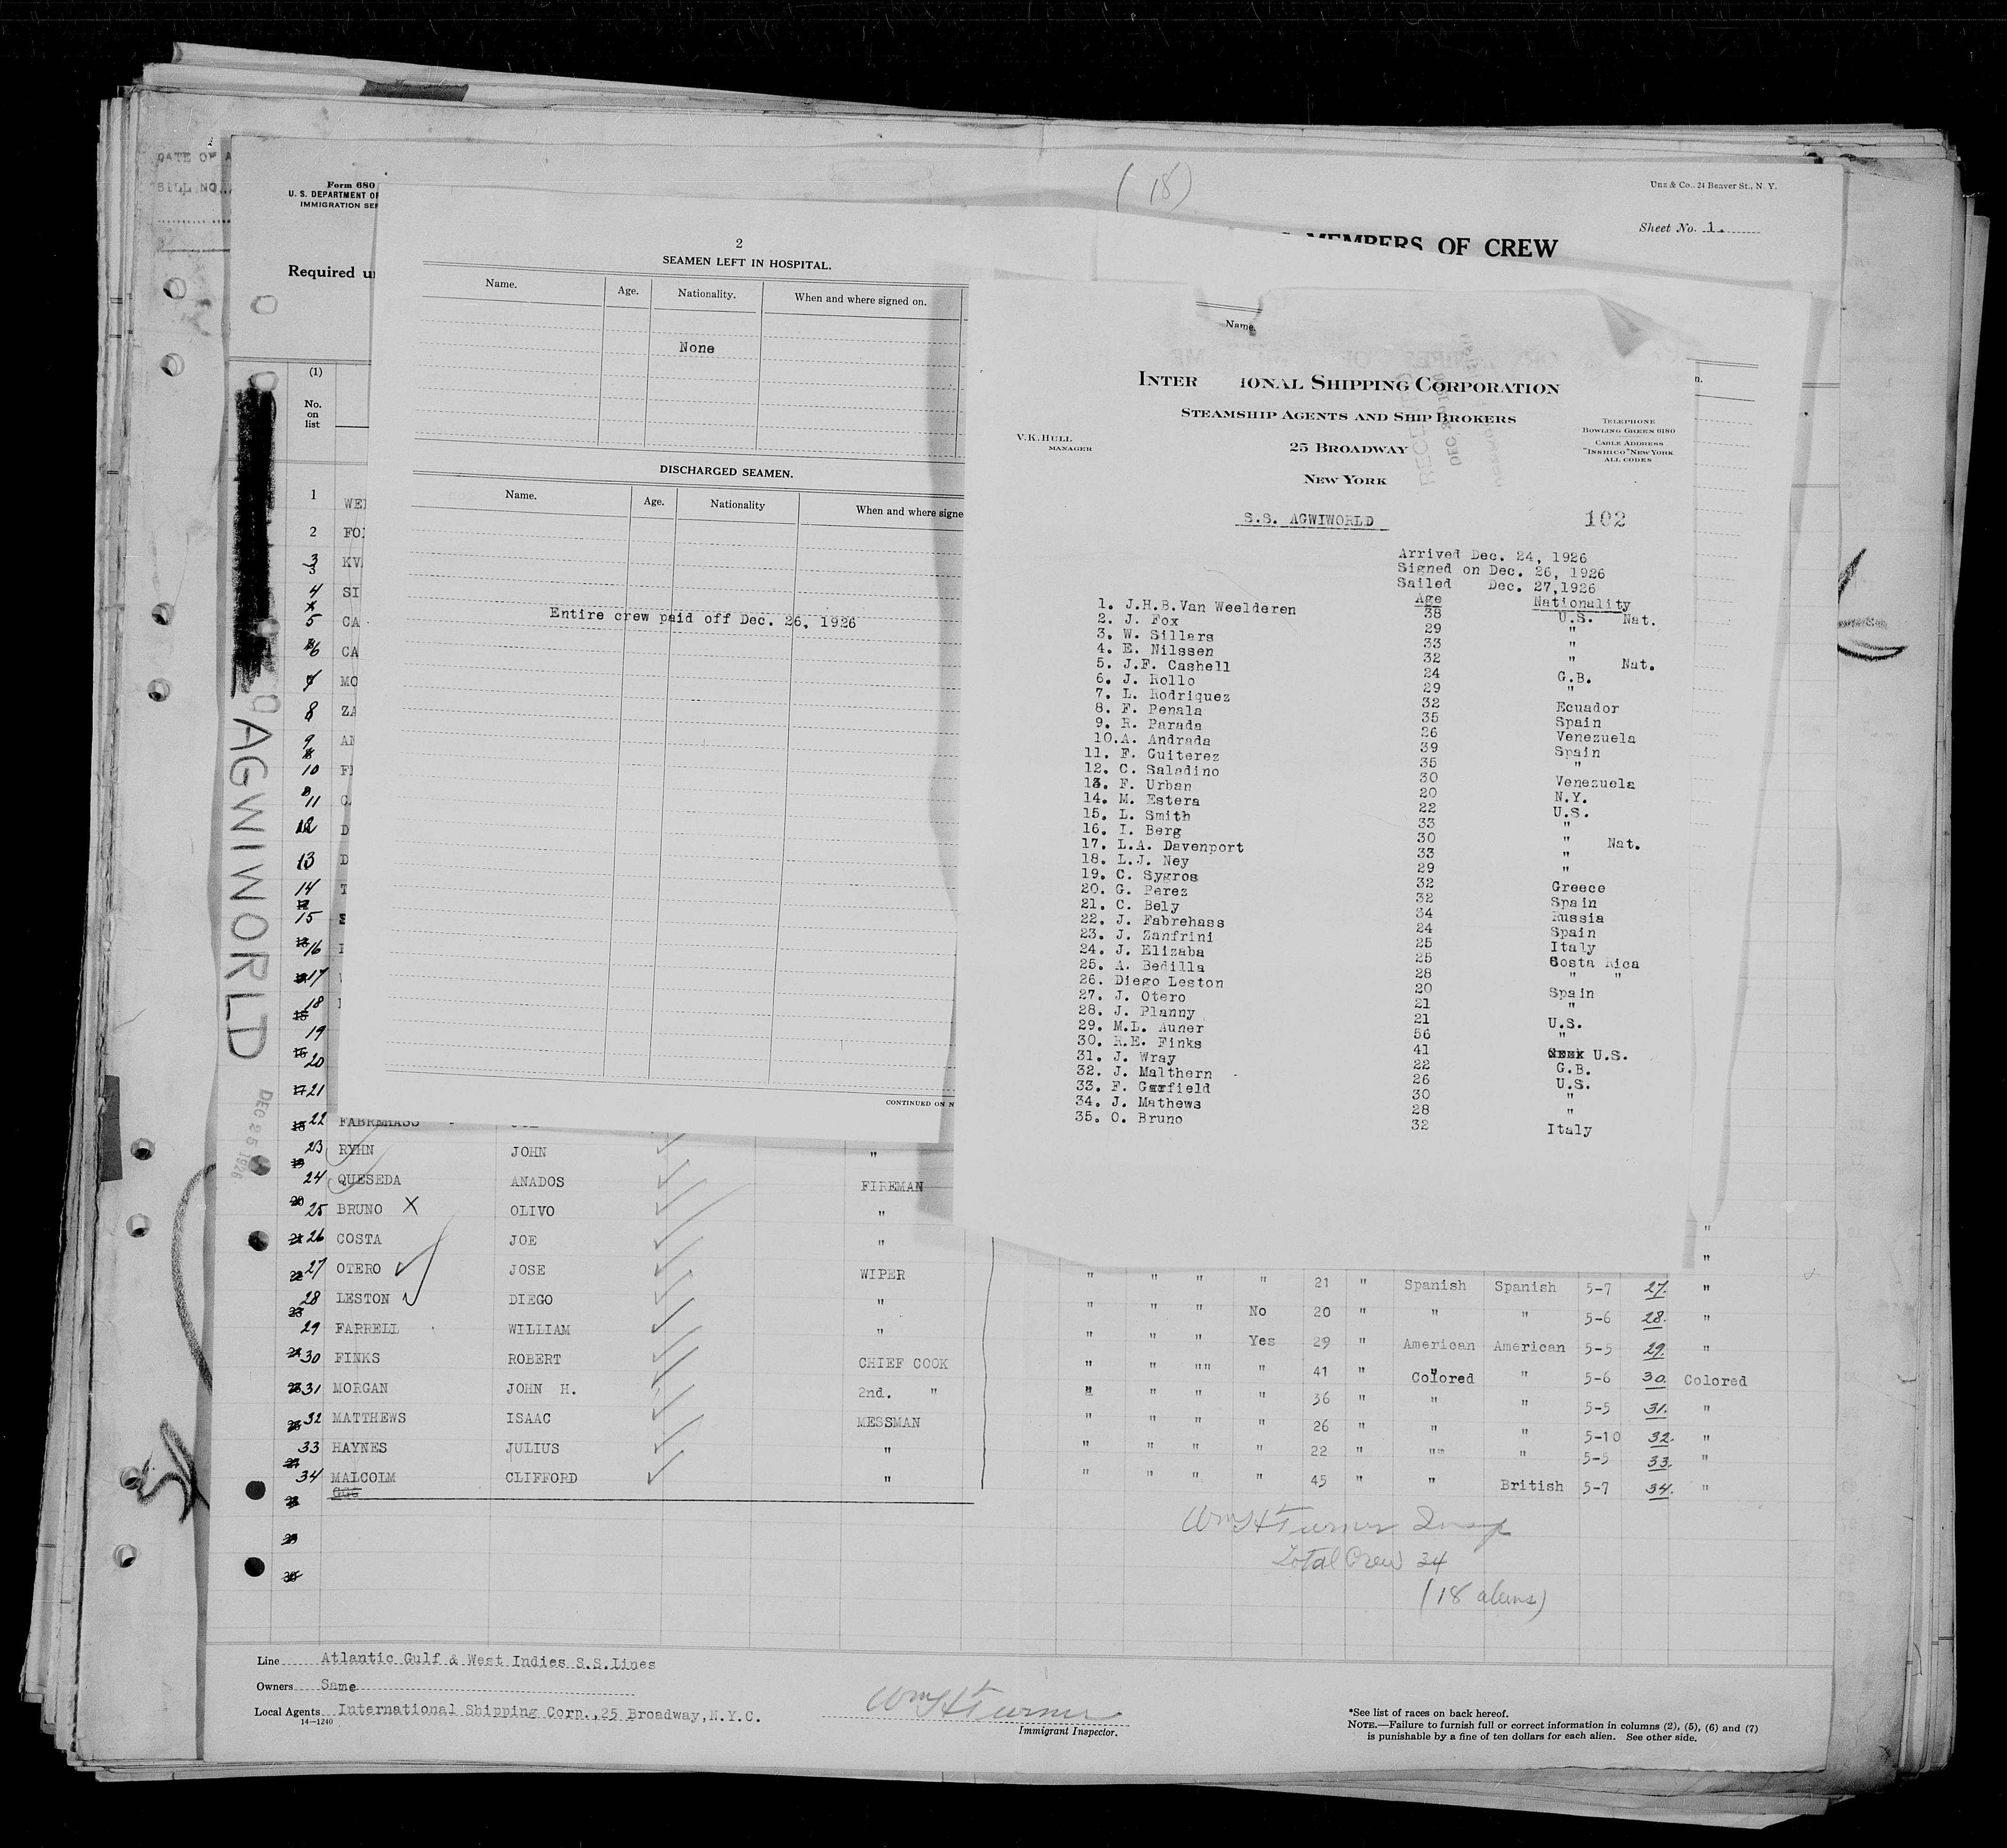 DATE OF A
BILL NO.
Form 680
U. S. DEPARTMENT OF
IMMIGRATION SER
Required u
(18)
Unz & Co., 24 Beaver St., N. Y.
Sheet No. 1.
MEMBERS OF CREW
(1)
No.
on
list
1 WEI
2 FO
3 KV
4 SI
5 CA
6 CA
7 MO
8 ZA
9 AN
10
11
12 D
13 D
14 T
15
16
17
18
19
20
21
AGWIWORLD
DEC 25 1926
2
SEAMEN LEFT IN HOSPITAL.
Name. Age. Nationality. When and where signed on.
None
DISCHARGED SEAMEN.
Name. Age. Nationality When and where signe
Entire crew paid off Dec. 26, 1926
CONTINUED ON N
Name.
INTER IONAL SHIPPING CORPORATION
STEAMSHIP AGENTS AND SHIP BROKERS
V. K. HULL
MANAGER
25 BROADWAY
NEW YORK
TELEPHONE
BOWLING GREEN 6180
CABLE ADDRESS
"INSHICO" NEW YORK
ALL CODES
S.S. AGWIWORLD
102
Arrived Dec. 24, 1926
Signed on Dec. 26, 1926
Sailed Dec. 27,1926
Age Nationality
1. J.H.B.Van Weelderen 38 U.S. Nat.
2. J. Fox 29 "
3. W. Sillars 33 "
4. E. Nilssen 32 " Nat.
5. J.F. Cashell 24 G.B.
6. J. Rollo 29 "
7. L. Rodriquez 32 Ecuador
8. F. Penala 35 Spain
9. R. Parada 26 Venezuela
10.A. Andrada 39 Spain
11. F. Guiterez 35 "
12. C. Saladino 30 Venezuela
13. F. Urban 20 N.Y.
14. M. Estera 22 U.S.
15. L. Smith 33 "
16. I. Berg 30 " Nat.
17. L.A. Davenport 33 "
18. L.J. Ney 29 "
19. C. Sygros 32 Greece
20. G. Perez 32 Spain
21. C. Bely 34 Russia
22. J. Fabrehass 24 Spain
23. J. Zanfrini 25 Italy
24. J. Elizaba 25 Costa Rica
25. A. Bedilla 28 " "
26. Diego Leston 20 Spain
27. J. Otero 21 "
28. J. Planny 21 U.S.
29. M.L. Auner 56 "
30. R.E. Finks 41 U.S.
31. J. Wray 22 G.B.
32. J. Malthern 26 U.S.
33. F. Garfield 30 "
34. J. Mathews 28 "
35. O. Bruno 32 Italy
22 FABREHASS
23 RYHN JOHN "
24 QUESEDA ANADOS FIREMAN
25 BRUNO X OLIVO "
26 COSTA JOE " "
27 OTERO JOSE WIPER " " " " 21 " Spanish Spanish 5-7 27. "
28 LESTON DIEGO " " " " No 20 " " " 5-6 28. "
29 FARRELL WILLIAM " " " " Yes 29 " American American 5-5 29. "
30 FINKS ROBERT CHIEF COOK " " "" " 41 " Colored " 5-6 30. Colored
31 MORGAN JOHN H. 2nd. " " " " " 36 " " " 5-5 31. "
32 MATTHEWS ISAAC MESSMAN " " " " 26 " " " 5-10 32. "
33 HAYNES JULIUS " " " " " 22 " "" " 5-5 33. "
34 MALCOLM CLIFFORD " " " " " 45 " " British 5-7 34. "
GGG
Wm H Turner Insp
Total Crew 34
(18 aliens)
Line Atlantic Gulf & West Indies S.S.Lines
Owners Same
Local Agents International Shipping Corp.,25 Broadway,N.Y.C.
14—1240
Wm H Turner
Immigrant Inspector.
*See list of races on back hereof.
NOTE.—Failure to furnish full or correct information in columns (2), (5), (6) and (7)
is punishable by a fine of ten dollars for each alien. See other side.